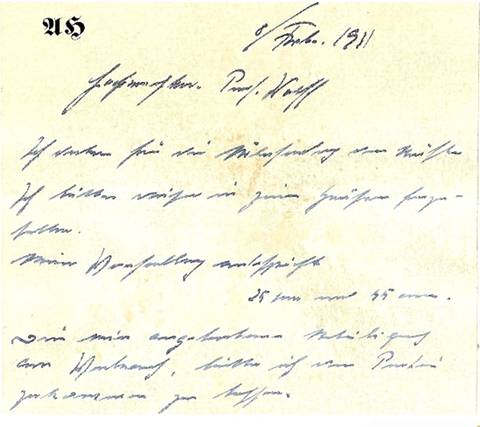 AH
8/Febr. 1911
Prof. Wolff
Ich danke für die Übersendung der
Ich bitte diese in zwei Grössen herzu-
stellen.
Meine Vorstellung entspricht
25 mm und 45 mm.
Die mir angebotene Beteiligung
am Verkauf, bitte ich der Partei
zukommen zu lassen.